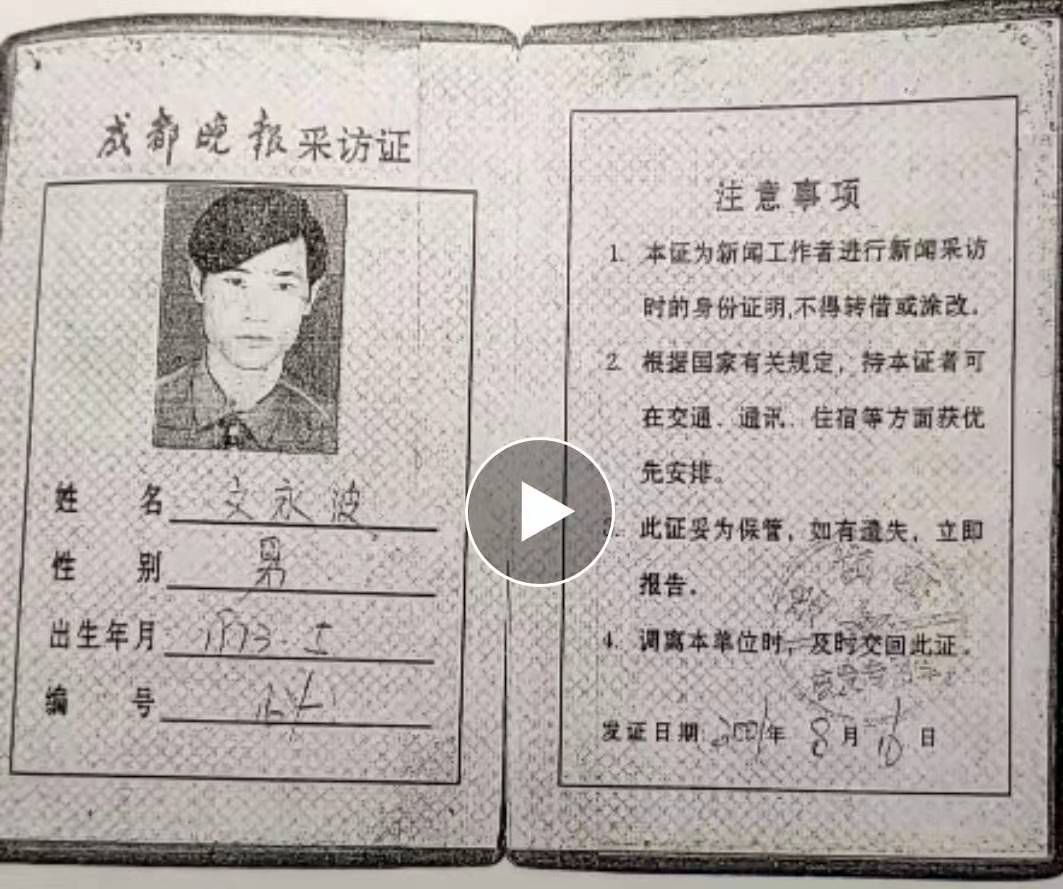 成都晚报采访证
姓名 文永波
性别 男
出生年月 1973.5
编号
注意事项
1. 本证为新闻工作者进行新闻采访
时的身份证明,不得转借或涂改。
2. 根据国家有关规定，持本证者可
在交通、通讯、住宿等方面获优
先安排。
此证妥为保管，如有遗失，立即
报告。
4. 调离本单位时，及时交回此证。
发证日期 2001年 8月 日